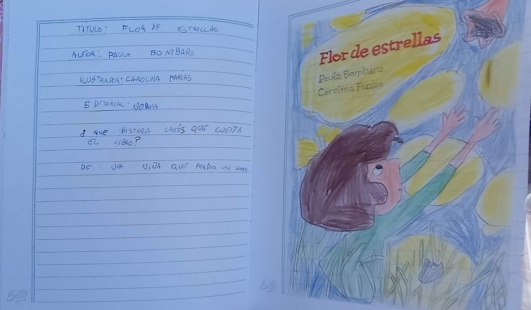 TITULO: FLOR DE ESTRELLAS
AUTOR: PAULA BOMBARA
ILUSTRADOR: CAROLINA FARÍAS
EDITORIAL: NORMA
¿ QUÉ HISTORIA CREÉS QUE CUENTA
EL LIBRO?
DE UNA NIÑA QUE PERDIO UN
Flor de estrellas
Paula Bombara
Carolina Farías